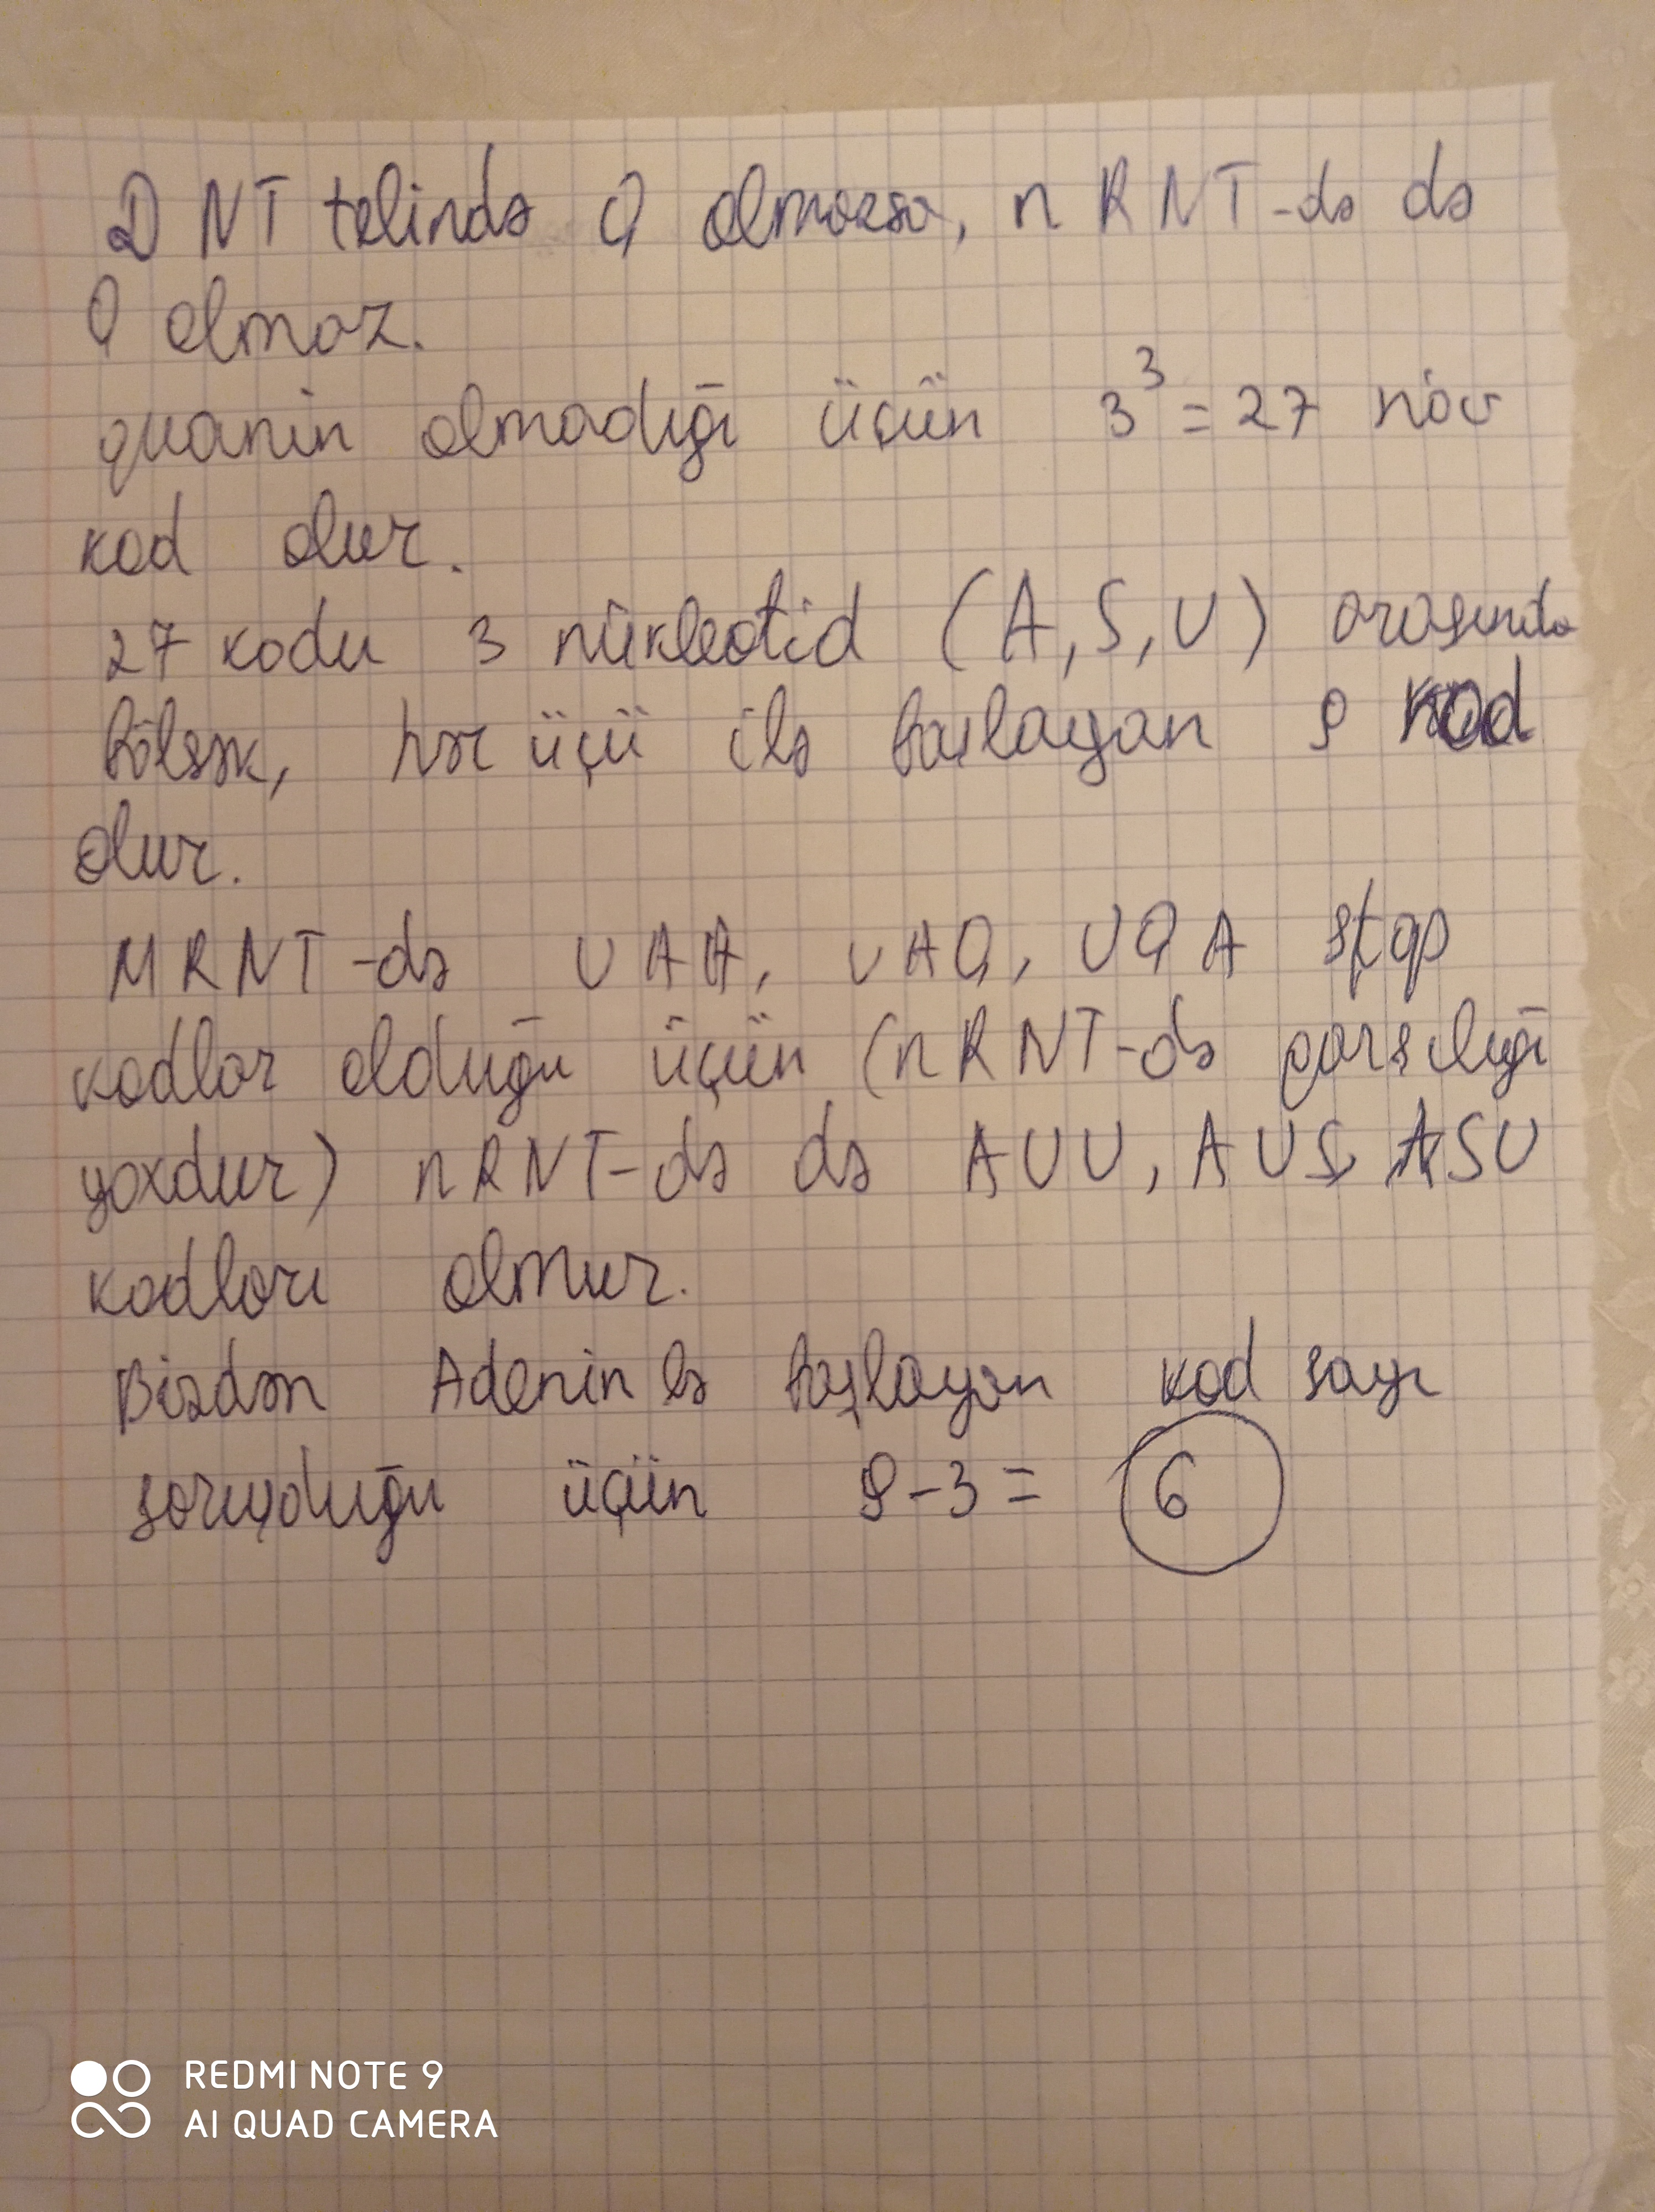 DNT telində Q olmazsa, n RNT-də də
Q olmaz.
quanin olmadığı üçün 3³ = 27 növ
kod olur.
27 kodu 3 nükleotid (A, S, U) arasında
bölsək, hər üçü ilə başlayan 9 kod
olur.
MRNT-də UAA, UAQ, UQA stop
kodlar olduğu üçün (nRNT-də qarşılığı
yoxdur) nRNT-də də AUU, AUS, ASU
kodları olmur.
Bizdən Adeninlə başlayan kod sayı
soruşduğu üçün 9-3= 6
REDMI NOTE 9
AI QUAD CAMERA